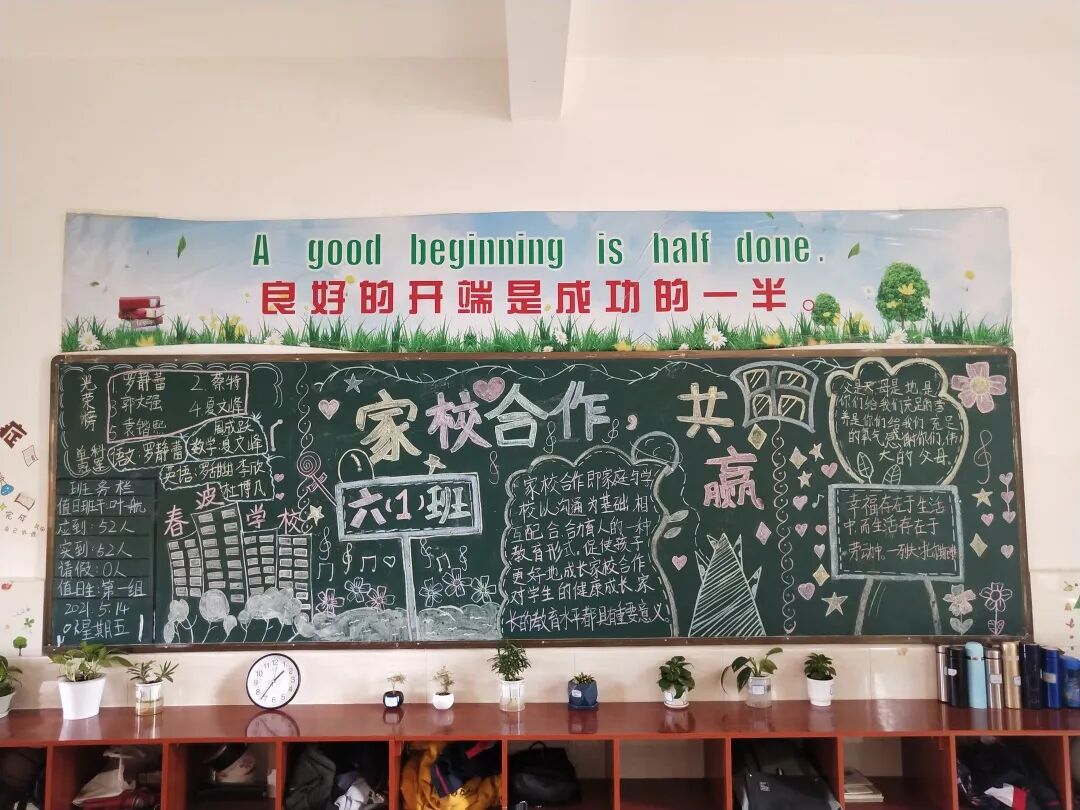 A good beginning is half done.
良好的开端是成功的一半。
家校合作,共赢
光荣榜
罗静蕾 2.秦特
4.夏文峰
语文 罗静蕾 数学 夏文峰
英语:
班务栏
应到:52人
实到:52人
请假:0人
值日生:第一组
2021.5.14
星期五
春波学校
六(1)班
家校合作即家庭与学
校以沟通为基础相
互配合、合力育人的一种
教育形式,促使孩子
更好地成长家校合作
对学生的健康成长、家
长的教育水平都具有重要意义。
父是天母是地是
你们给我们充足的
养是你们给我们充足
的氧气感谢你们,伟
大的父母。
幸福存在于生活
中,而生活存在于
劳动中。